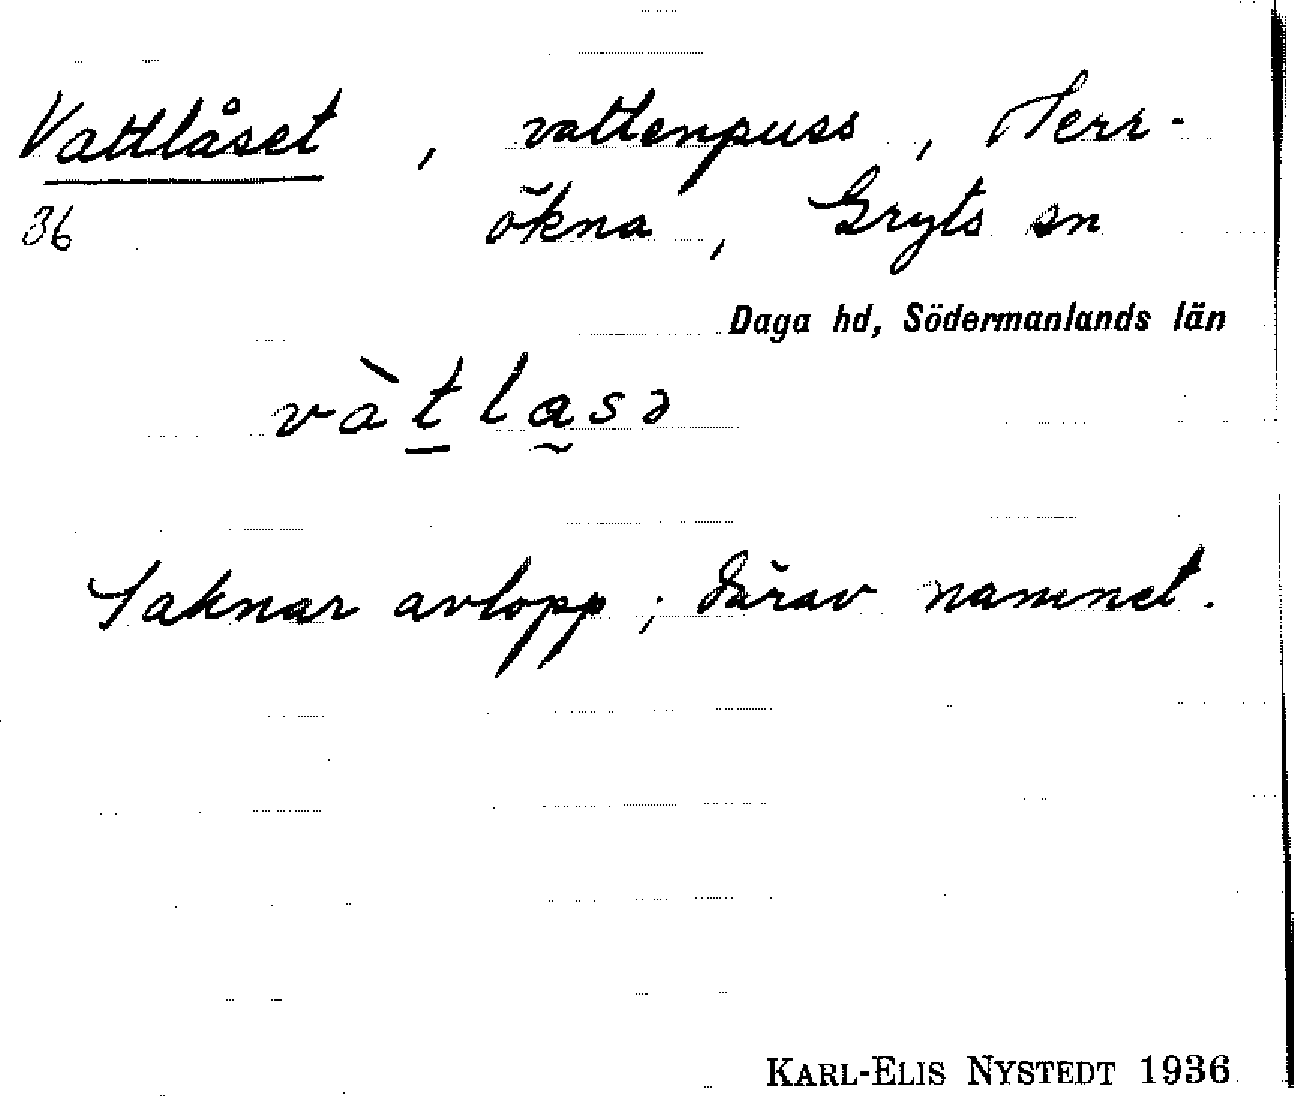 Vattlåset, vattenpuss, Herr-
36 ökna, Gryts sn
Daga hd, Södermanlands län
vàt̠la̰sə
Saknar avlopp; därav namnet.
KARL-ELIS NYSTEDT 1936